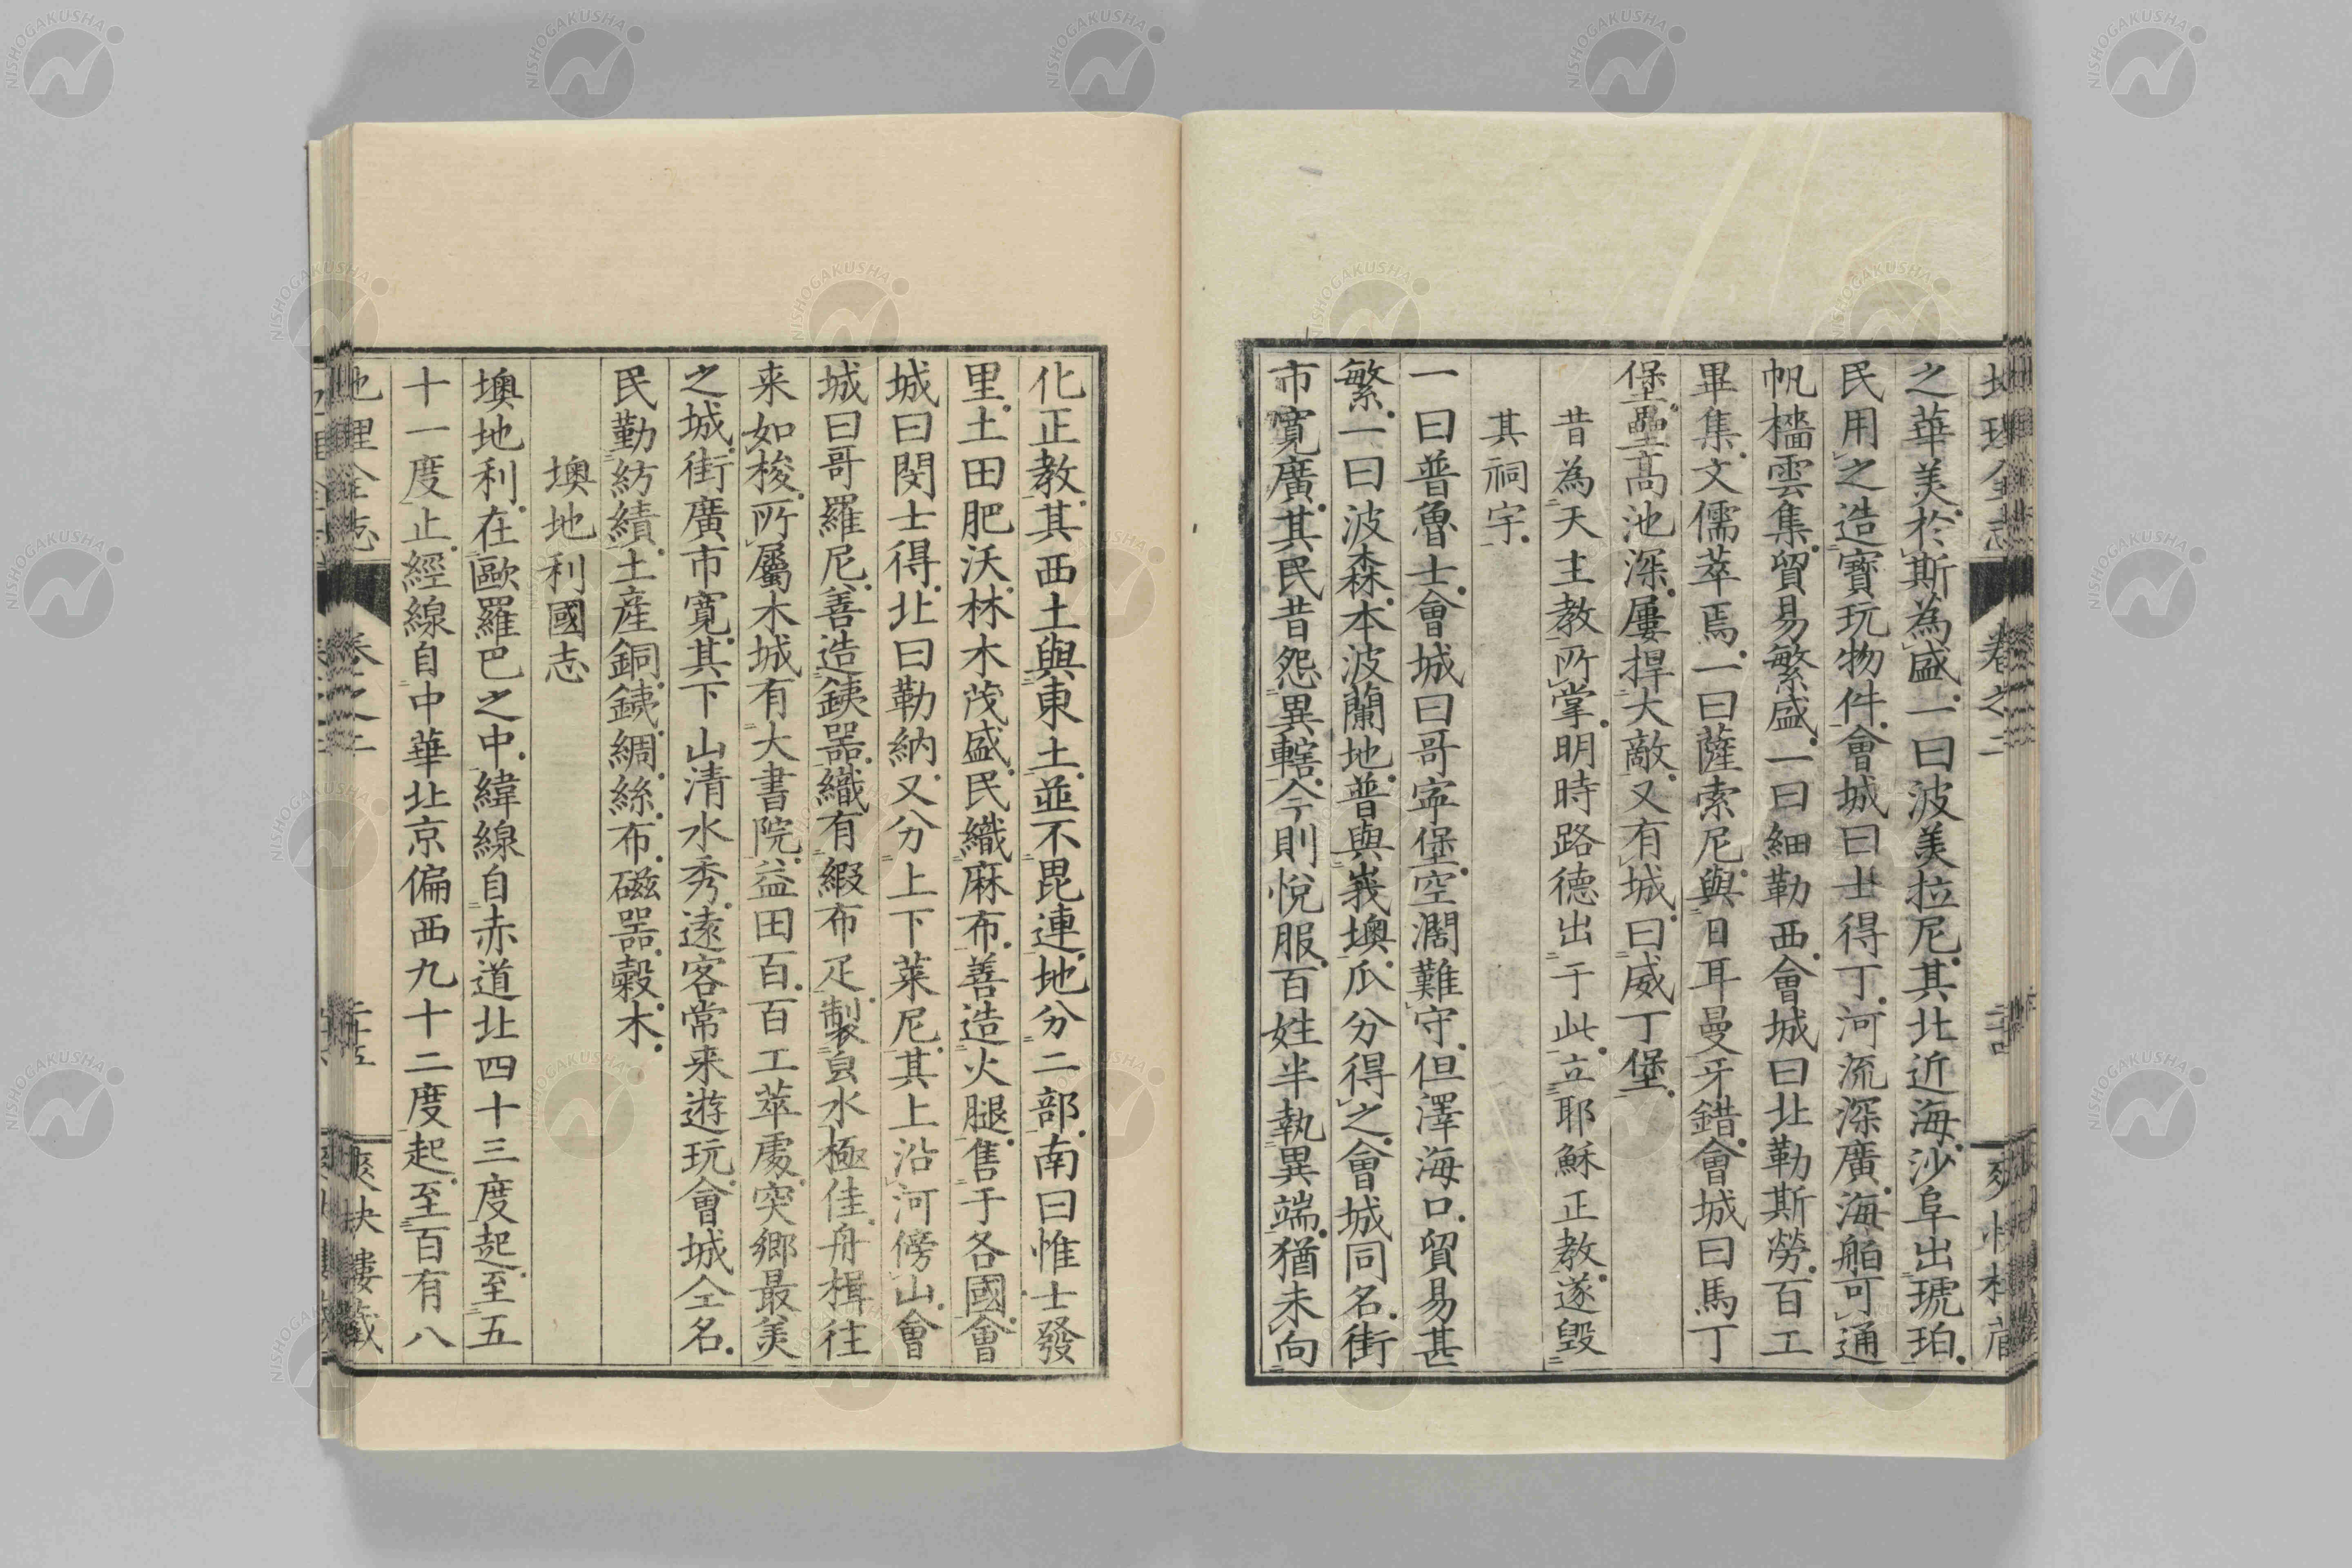 之華美於斯為盛一曰波美拉尼其北近海沙阜出琥珀
民用之造寶玩物件會城曰士得丁河流深廣海舶可通
帆檣雲集貿易繁盛一曰細勒西會城曰北勒斯勞百工
畢集文儒萃焉一曰薩索尼與日耳曼牙錯會城曰馬丁
堡壘高池深屢捍大敵又有城曰威丁堡
昔為天主教所掌明時路德出于此立耶穌正教遂毀
其祠宇
一曰普魯士會城曰哥寕堡空濶難守但澤海口貿易甚
繁一曰波森本波蘭地普與峩墺瓜分得之會城同名街
市寬廣其民昔怨異轄今則悅服百姓半執異端猶未向
化正教其西土與東土並不毘連地分二部南曰惟士發
里土田肥沃林木茂盛民織麻布善造火腿售于各國會
城曰閔士得北曰勒納又分上下萊尼其上沿河傍山會
城曰哥羅尼善造銕器織有緞布疋製負水極佳舟楫往
来如梭所屬木城有大書院益田百百工萃處突鄉最美
之城街廣市寬其下山清水秀遠客常来遊玩會城仝名
民勤紡績土産銅銕綢絲布磁器糓木
墺地利國志
墺地利在歐羅巴之中緯線自赤道北四十三度起至五
十一度止經線自中華北京偏西九十二度起至百有八
地理全志 卷之二 二十五 爽快樓蔵